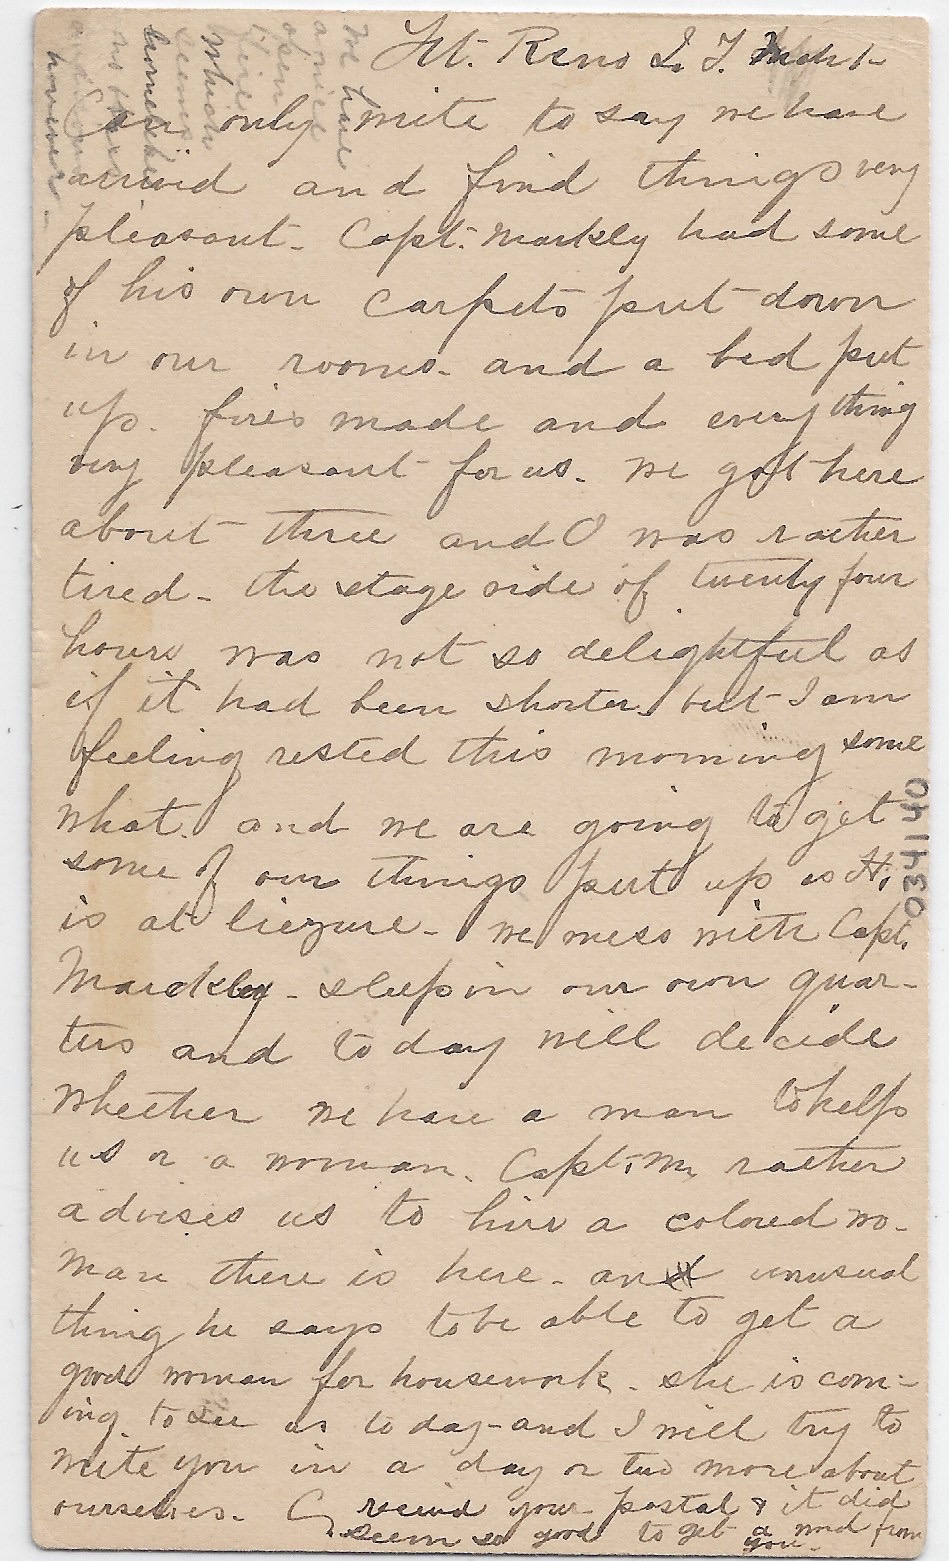 Ft. Reno I. T. Mch 1-
Can only write to say we have
arrived and find things very
pleasant- Capt. Markley had some
of his own carpets put down
in our rooms- and a bed put
up. fires made and everything
very pleasant for us. we got here
about three and I was rather
tired- the stage ride of twenty four
hours was not so delightful as
if it had been shorter. but I am
feeling rested this morning some
what. and we are going to get
some of our things put up as H.
is at liezure- we mess with Capt.
Marckley- sleep in our own quar-
ters and to day will decide
whether we have a man to help
us or a woman. Capt. M. rather
advises us to hire a colored wo-
man there is here- an unusual
thing he says to be able to get a
good woman for housework. she is com-
ing to see us to day- and I will try to
write you in a day or two more about
ourselves. C. recievd your postal & it did
seem so good to get a word from
you-
We have
a nice
open
fire
which
seems
homelike
no
however-
034140